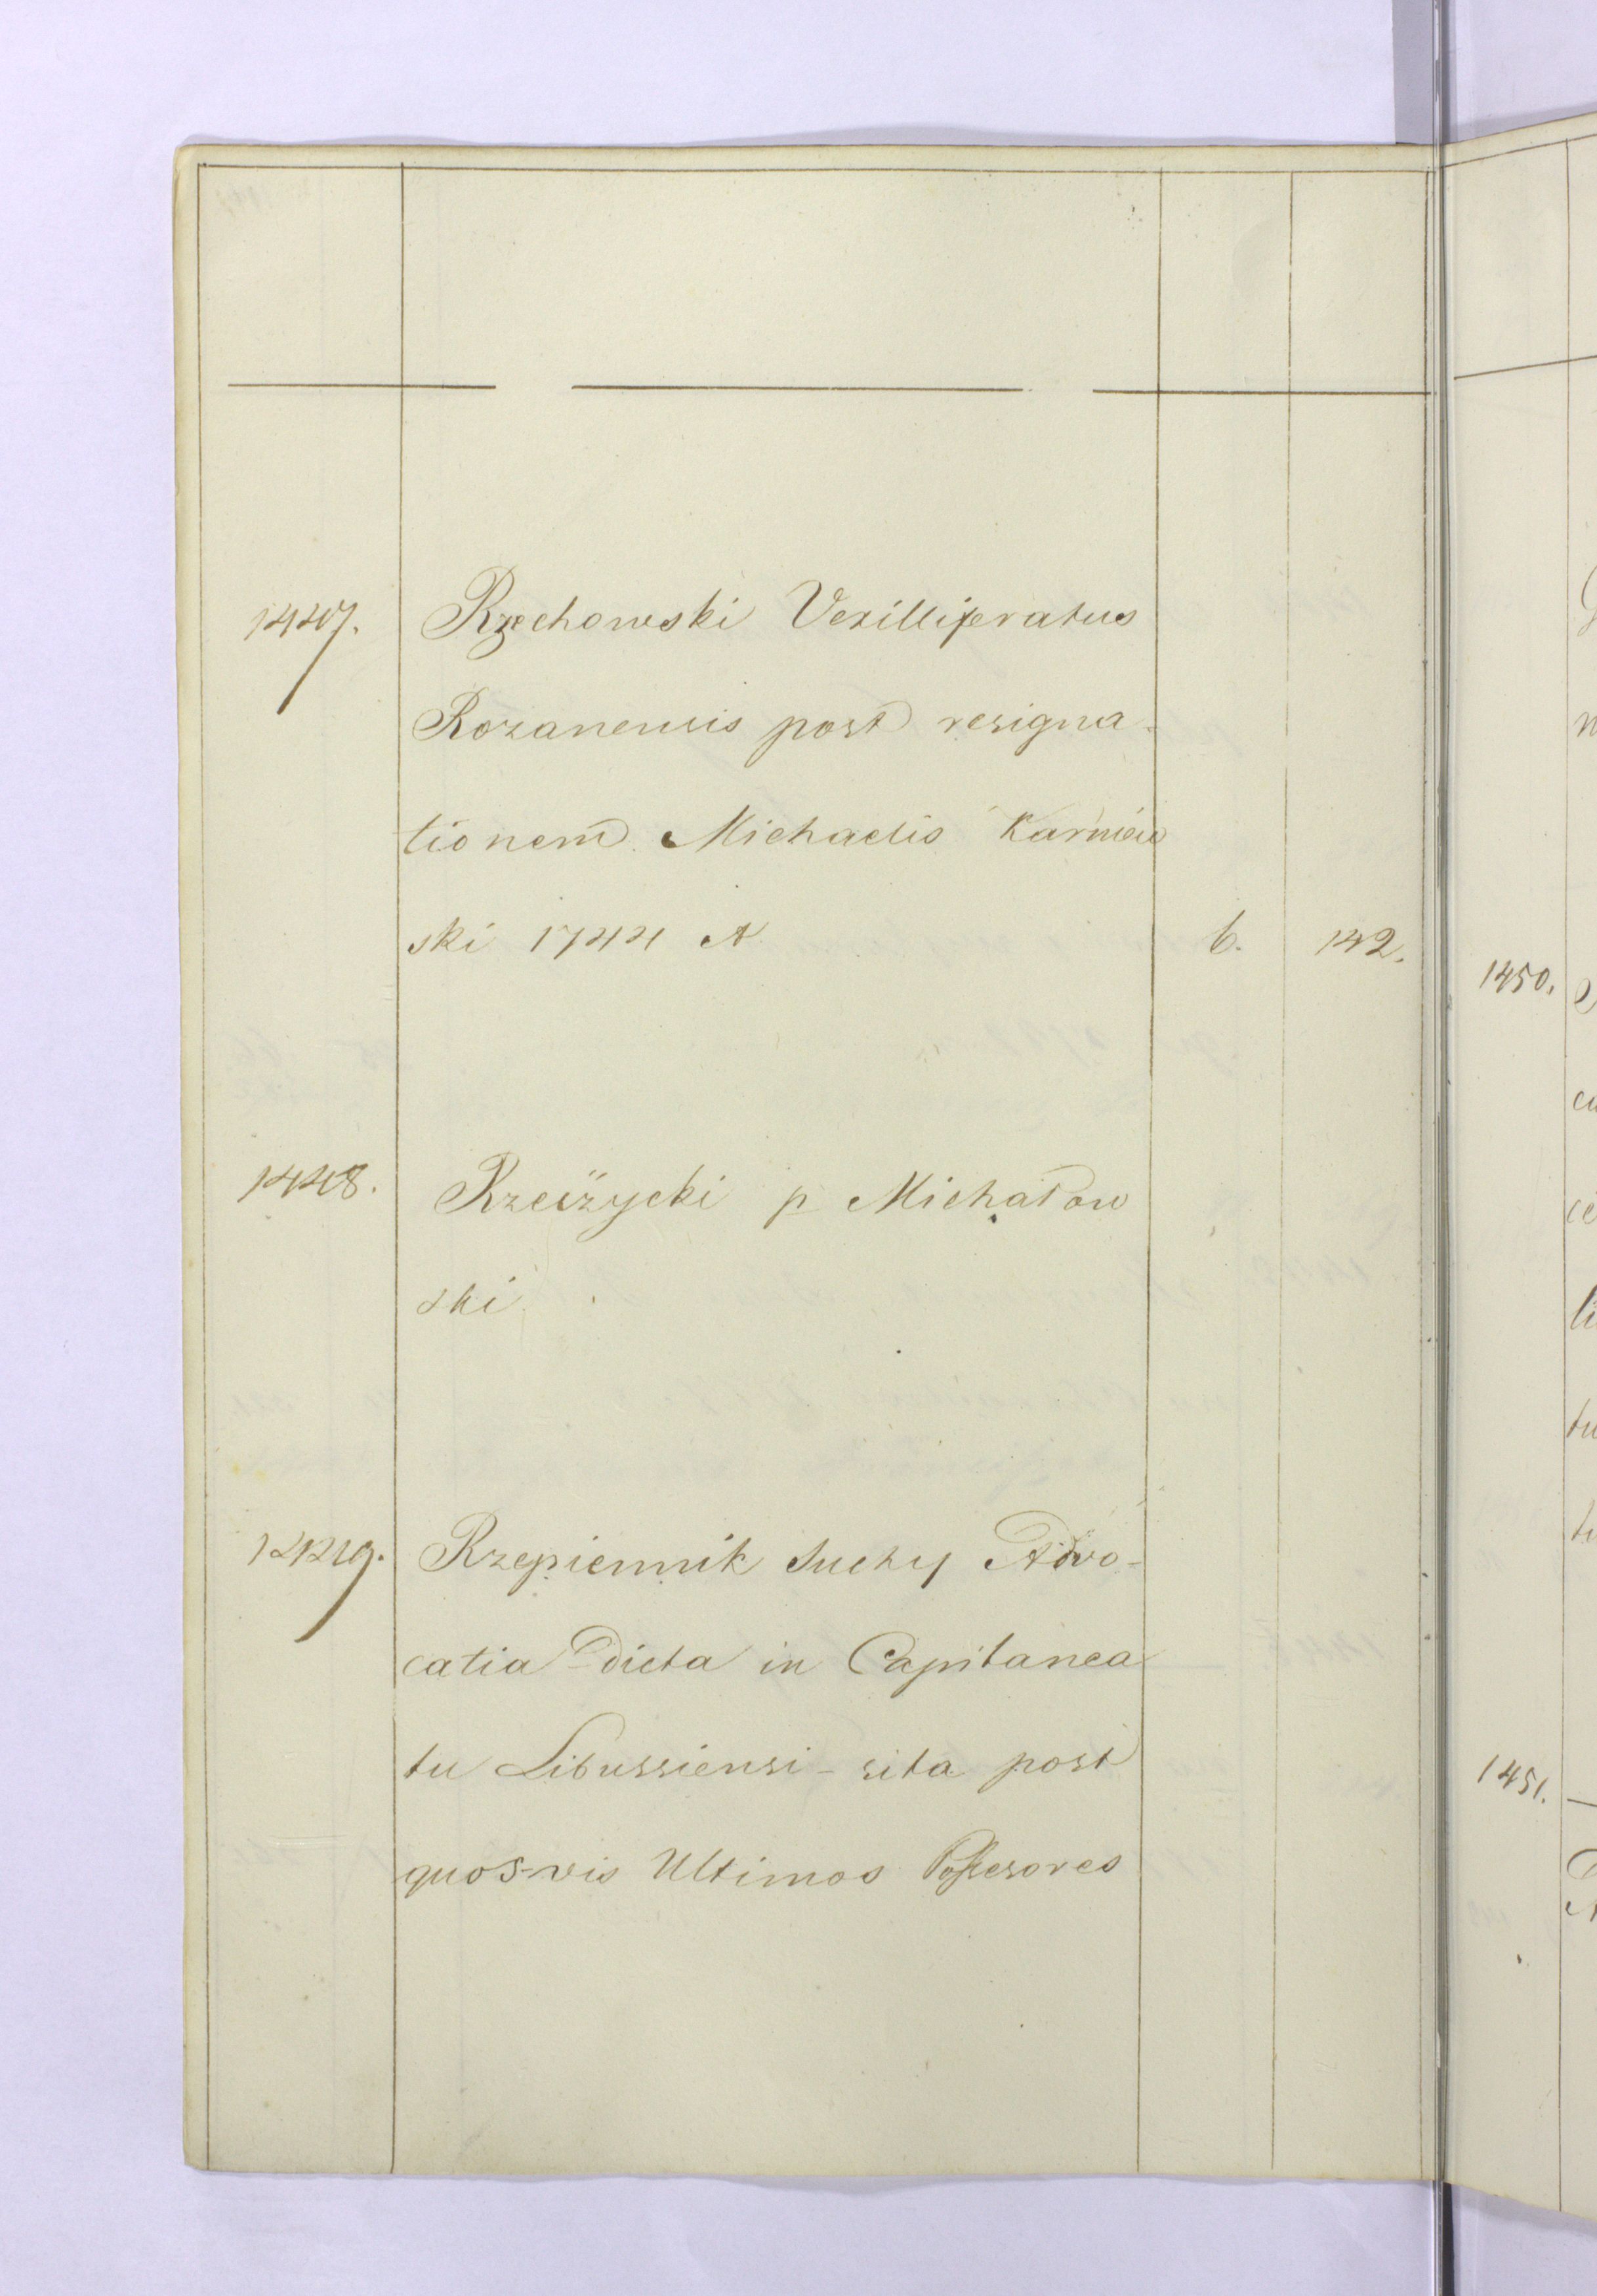 1447. Rzechowski Vexilliferatus
Rozanensis post resigna-
tionem Michaelis Karniew
ski 1744 A 6. 142.
1448. Rzeiżycki p Michałow
ski
1449. Rzepiennik Suchy Advo-
catia dicta in Capitanea
tu Libussiensi - sita post
quos-vis Ultimos Possesores
1450.
1451.